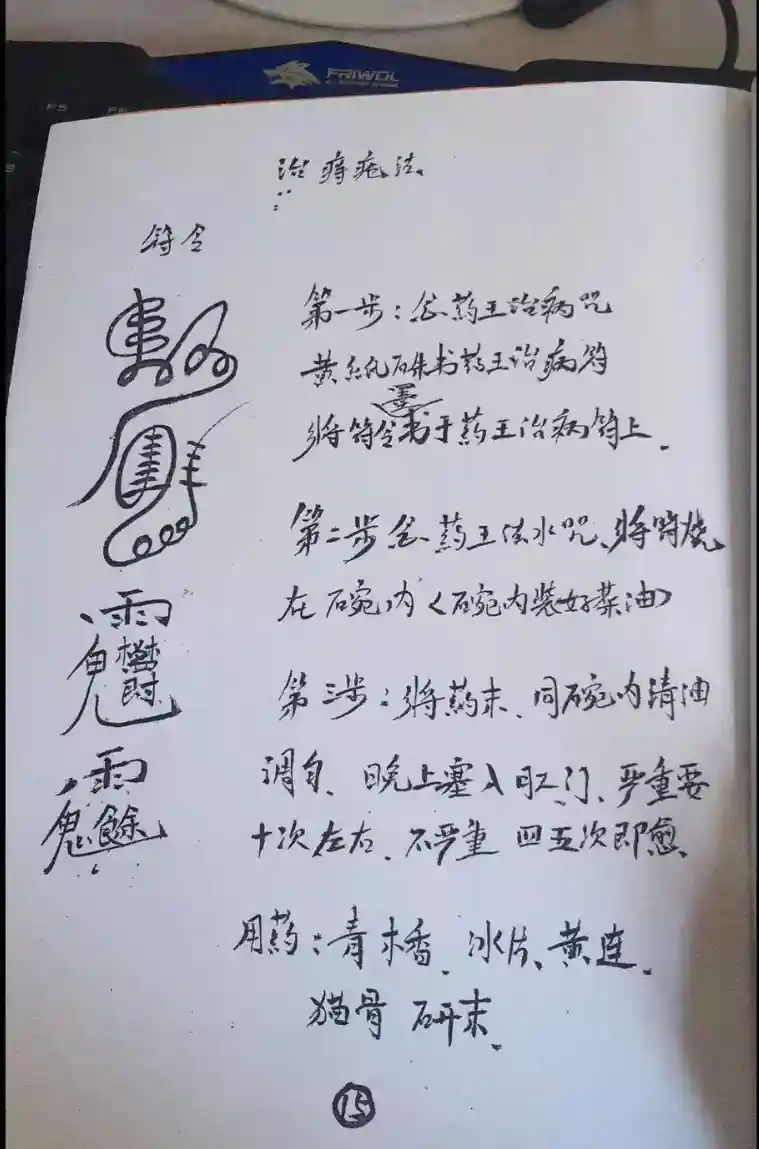 FRIWOL
F5
治痔疮法
符令
第一步：念药王治病咒
黄纸硃书药王治病符
将符令墨书于药王治病符上.
第二步念药王法水咒、将符烧
在碗内（碗内装好菜油）
第三步：将药末、同碗内清油
调匀、晚上塞入肛门、严重要
十次左右、不严重 四五次即愈、
用药：青木香、冰片、黄连、
猫骨 研末、
15